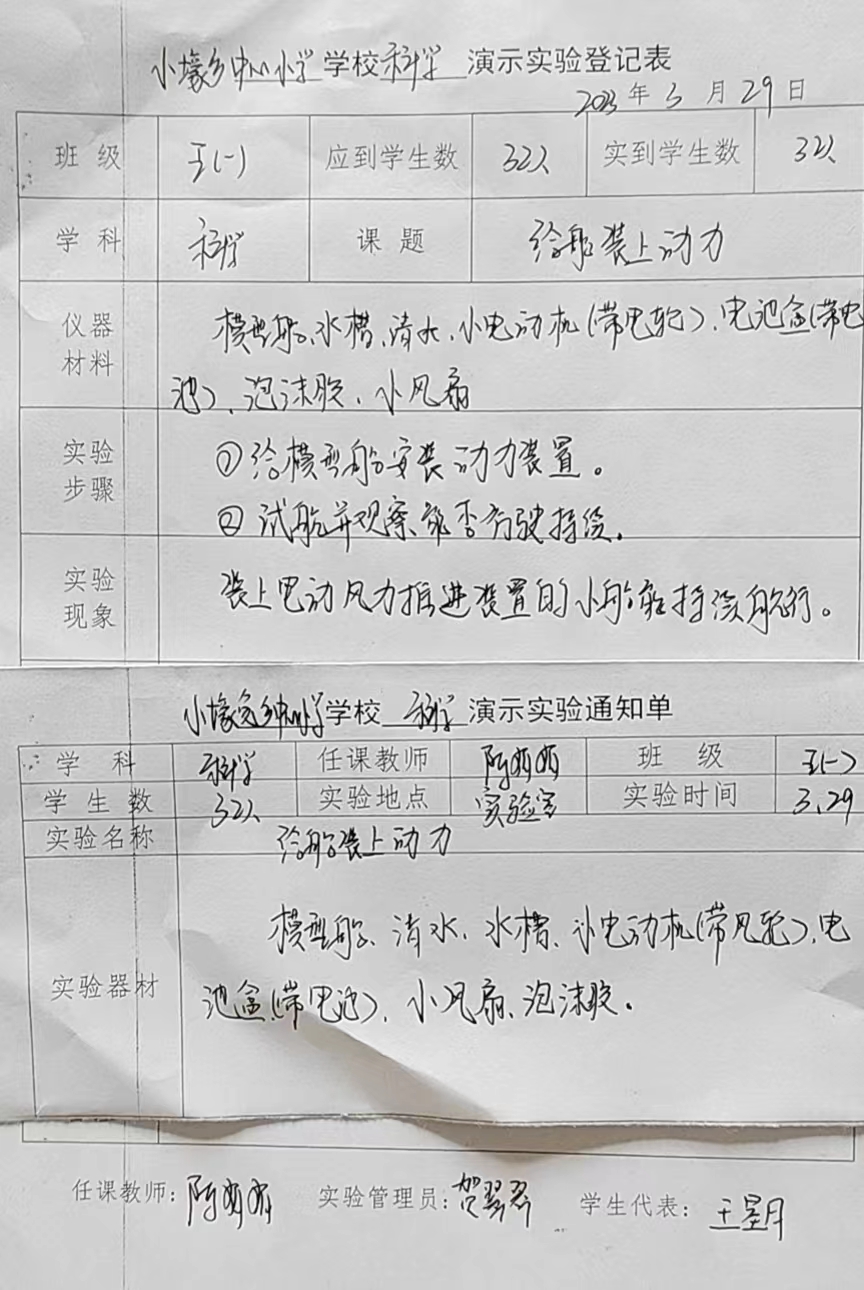 小壕乡中心小学学校 科学 演示实验登记表
2023年3月29日
班 级 五(一) 应到学生数 32人 实到学生数 32人
学 科 科学 课 题 给船装上动力
仪器 模型船、水槽、清水、小电动机(带电轮)、电池盒(带电
材料 池)、泡沫胶、小风扇
实验 ①给模型船安装动力装置。
步骤 ②试航并观察能否行驶持续。
实验 装上电动风力推进装置的小船能持续航行。
现象
学校 科学 演示实验通知单
学 科 科学 任课教师 班 级 五(一)
学 生 数 32人 实验地点 实验室 实验时间 3.29
实验名称 给船装上动力
模型船、清水、水槽、小电动机(带风轮)、电
实验器材 池盒(带电池)、小风扇、泡沫胶。
任课教师： 实验管理员：贺翠翠 学生代表：王星月